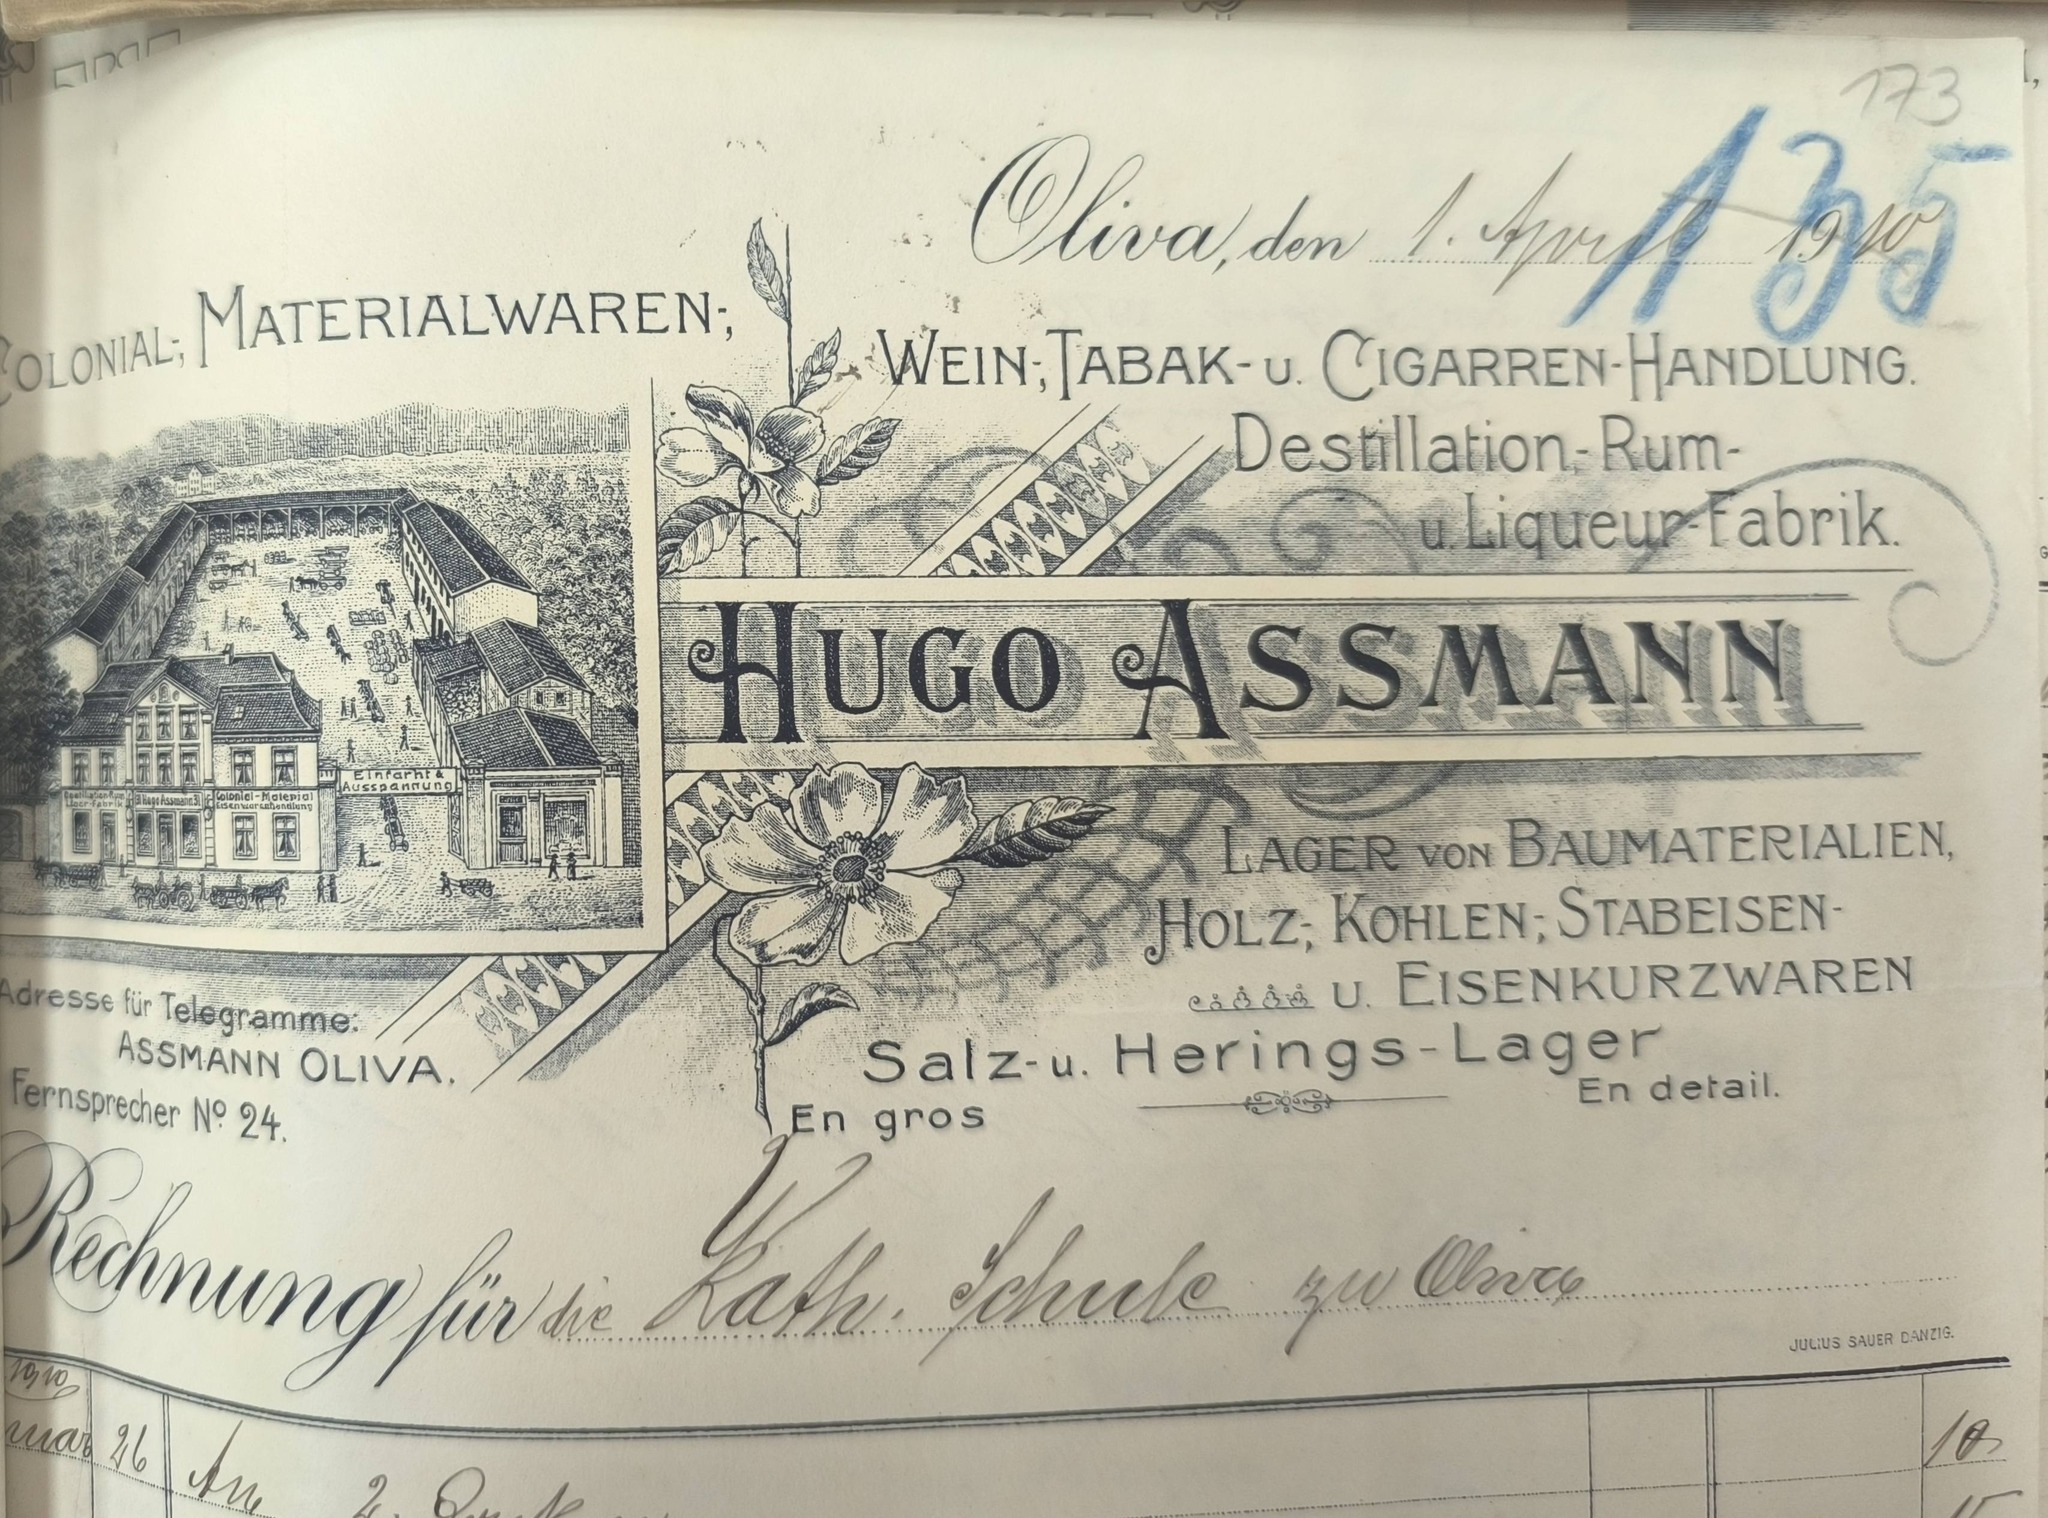 173
135
Oliva, den 1. April 1910
Colonial-, Materialwaren-,
Wein-, Tabak- u. Cigarren-Handlung.
Destillation-, Rum-
u. Liqueur-Fabrik.
Hugo Assmann
Einfarht &
Ausspannung
Hugo Assmann
Colonial-Material
Eisenwarenhandlung
Lager von Baumaterialien,
Holz-, Kohlen-, Stabeisen-
u. Eisenkurzwaren
Salz- u. Herings-Lager
En gros
En detail.
Adresse für Telegramme:
Assmann Oliva.
Fernsprecher No 24.
Rechnung für die Kath. Schule zu Oliva
JULIUS SAUER DANZIG.
1910
26 An 2 10
15